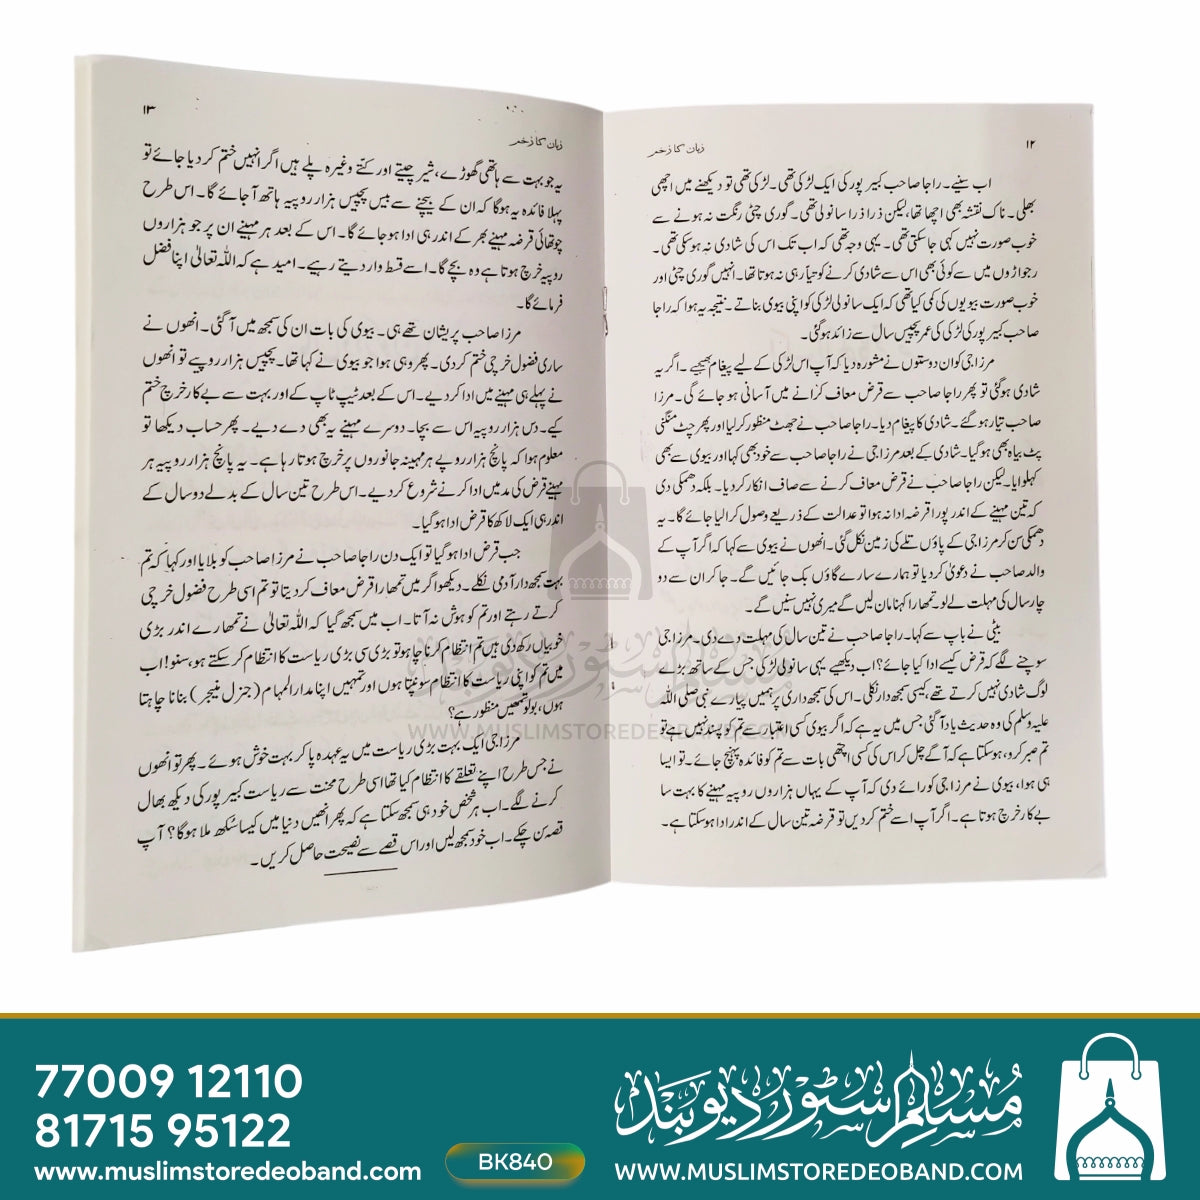 ۱۲
زبان کا زخم
اب سنیے۔ راجا صاحب کبیر پور کی ایک لڑکی تھی۔ لڑکی تھی تو دیکھنے میں اچھی
بھلی۔ ناک نقشہ بھی اچھا تھا، لیکن ذرا ذرا سانولی تھی۔ گوری چٹی رنگت نہ ہونے سے
خوب صورت نہیں کہی جا سکتی تھی۔ یہی وجہ تھی کہ اب تک اس کی شادی نہ ہو سکی تھی۔
رجواڑوں میں سے کوئی بھی اس سے شادی کرنے کو تیار ہی نہ ہوتا تھا۔ انہیں گوری چٹی اور
خوب صورت بیویوں کی کمی کیا تھی کہ ایک سانولی لڑکی کو اپنی بیوی بناتے۔ نتیجہ یہ ہوا کہ راجا
صاحب کبیر پور کی لڑکی کی عمر پچیس سال سے زائد ہو گئی۔
مرزا جی کو ان دوستوں نے مشورہ دیا کہ آپ اس لڑکی کے لیے پیغام بھیجیے۔ اگر یہ
شادی ہو گئی تو پھر راجا صاحب سے قرض معاف کرانے میں آسانی ہو جائے گی۔ مرزا
صاحب تیار ہو گئے۔ شادی کا پیغام دیا۔ راجا صاحب نے جھٹ منظور کر لیا اور پھر چٹ منگنی
پٹ بیاہ بھی ہو گیا۔ شادی کے بعد مرزا جی نے راجا صاحب سے خود بھی کہا اور بیوی سے بھی
کہلوایا۔ لیکن راجا صاحب نے قرض معاف کرنے سے صاف انکار کر دیا۔ بلکہ دھمکی دی
کہ تین مہینے کے اندر پورا قرضہ ادا نہ ہوا تو عدالت کے ذریعے وصول کر الیا جائے گا۔ یہ
دھمکی سن کر مرزا جی کے پاؤں تلے کی زمین نکل گئی۔ انھوں نے بیوی سے کہا کہ اگر آپ کے
والد صاحب نے دعویٰ کر دیا تو ہمارے سارے گاؤں بک جائیں گے۔ جا کر ان سے دو
چار سال کی مہلت لے لو۔ تمھارا کہنا مان لیں گے میری نہیں سنیں گے۔
بیٹی نے باپ سے کہا۔ راجا صاحب نے تین سال کی مہلت دے دی۔ مرزا جی
سوچنے لگے کہ قرض کیسے ادا کیا جائے؟ اب دیکھیے یہی سانولی لڑکی جس کے ساتھ بڑے
لوگ شادی نہیں کرتے تھے، کیسی سمجھ دار نکلی۔ اس کی سمجھ داری پر ہمیں پیارے نبی صلی اللہ
علیہ وسلم کی وہ حدیث یاد آگئی جس میں یہ ہے کہ اگر بیوی کسی اعتبار سے تم کو پسند نہیں ہے تو
تم صبر کرو، ہو سکتا ہے کہ آگے چل کر اس کی کسی اچھی بات سے تم کو فائدہ پہنچ جائے۔ تو ایسا
ہی ہوا، بیوی نے مرزا جی کو رائے دی کہ آپ کے یہاں ہزاروں روپیہ مہینے کا بہت سا
بے کار خرچ ہوتا ہے۔ اگر آپ اسے ختم کر دیں تو قرضہ تین سال کے اندر ادا ہو سکتا ہے۔
۱۳
زبان کا زخم
یہ جو بہت سے ہاتھی گھوڑے، شیر چیتے اور کتے وغیرہ پلے ہیں اگر انہیں ختم کر دیا جائے تو
پہلا فائدہ یہ ہوگا کہ ان کے بیچنے سے بیس پچیس ہزار روپیہ ہاتھ آ جائے گا۔ اس طرح
چوتھائی قرضہ مہینے بھر کے اندر ہی ادا ہو جائے گا۔ اس کے بعد ہر مہینے ان پر جو ہزاروں
روپیہ خرچ ہوتا ہے وہ بچے گا۔ اسے قسط وار دیتے رہیے۔ امید ہے کہ اللہ تعالیٰ اپنا فضل
فرمائے گا۔
مرزا صاحب پریشان تھے ہی۔ بیوی کی بات ان کی سمجھ میں آ گئی۔ انھوں نے
ساری فضول خرچی ختم کر دی۔ پھر وہی ہوا جو بیوی نے کہا تھا۔ پچیس ہزار روپیے تو انھوں
نے پہلے ہی مہینے میں ادا کر دیے۔ اس کے بعد ٹیپ ٹاپ کے اور بہت سے بے کار خرچ ختم
کیے۔ دس ہزار روپیہ اس سے بچا۔ دوسرے مہینے یہ بھی دے دیے۔ پھر حساب دیکھا تو
معلوم ہوا کہ پانچ ہزار روپے ہر مہینہ جانوروں پر خرچ ہوتا رہا ہے۔ یہ پانچ ہزار روپیہ ہر
مہینے قرض کی مد میں ادا کرنے شروع کر دیے۔ اس طرح تین سال کے بدلے دو سال کے
اندر ہی ایک لاکھ کا قرض ادا ہو گیا۔
جب قرض ادا ہو گیا تو ایک دن راجا صاحب نے مرزا صاحب کو بلایا اور کہا کہ تم
بہت سمجھ دار آدمی نکلے۔ دیکھو اگر میں تمھارا قرض معاف کر دیتا تو تم اسی طرح فضول خرچی
کرتے رہتے اور تم کو ہوش نہ آتا۔ اب میں سمجھ گیا کہ اللہ تعالیٰ نے تمھارے اندر بڑی
خوبیاں رکھ دی ہیں تم انتظام کرنا چاہو تو بڑی سی بڑی ریاست کا انتظام کر سکتے ہو، سنو! اب
میں تم کو اپنی ریاست کا انتظام سونپتا ہوں اور تمہیں اپنا مدار المہام (جنرل منیجر) بنانا چاہتا
ہوں، بولو تمھیں منظور ہے؟
مرزا جی ایک بہت بڑی ریاست میں یہ عہدہ پا کر بہت خوش ہوئے۔ پھر تو انھوں
نے جس طرح اپنے تعلقے کا انتظام کیا تھا اسی طرح محنت سے ریاست کبیر پور کی دیکھ بھال
کرنے لگے۔ اب ہر شخص خود ہی سمجھ سکتا ہے کہ پھر انھیں دنیا میں کیسا سُکھ ملا ہوگا؟ آپ
قصہ سن چکے۔ اب خود سمجھ لیں اور اس قصے سے نصیحت حاصل کریں۔
مسلم سٹور دیوبند
WWW.MUSLIMSTOREDEOBAND.COM
77009 12110
81715 95122
www.muslimstoredeoband.com
BK840
مسلم سٹور دیوبند
WWW.MUSLIMSTOREDEOBAND.COM